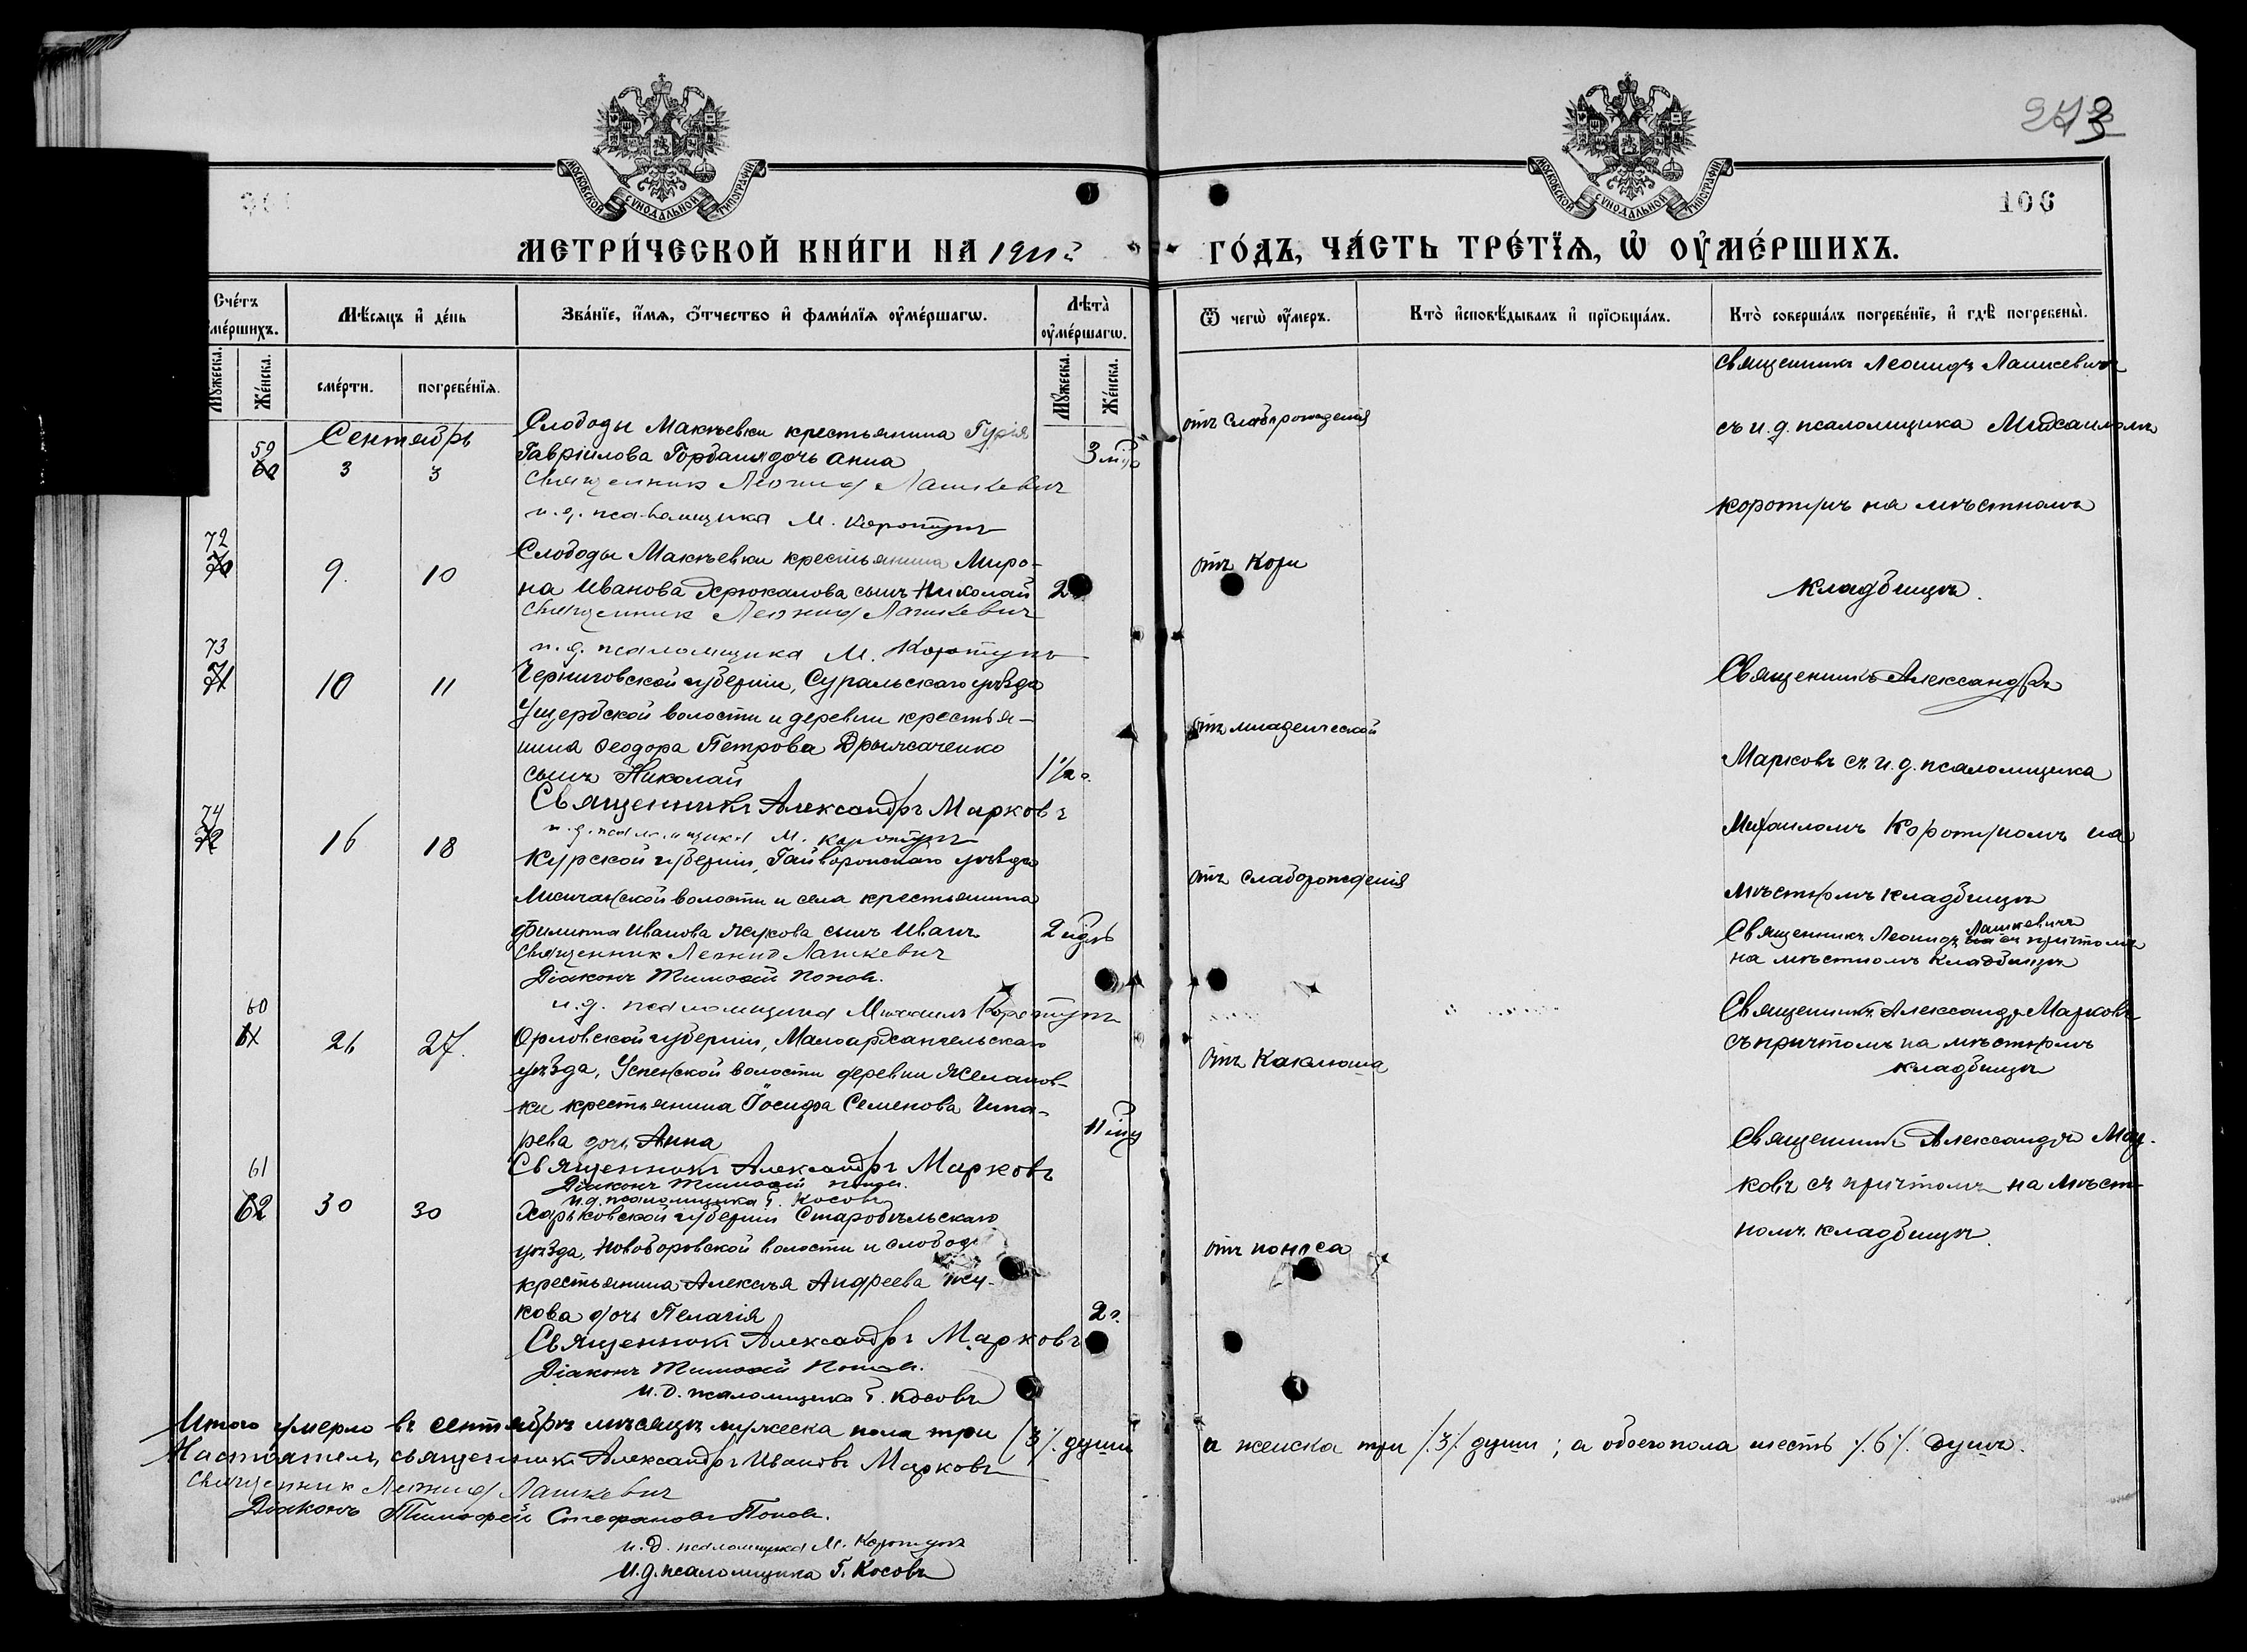 273
106
МОСКОВСКОЙ СѴНОДАЛЬНОЙ ТИПОГРАФІИ
МОСКОВСКОЙ СѴНОДАЛЬНОЙ ТИПОГРАФІИ
МЕТРИ́ЧЕСКОЙ КНИ́ГИ НА 1911 г.
ГО́ДЪ, ЧА́СТЬ ТРЕ́ТЇѦ, Ѡ҆ ОУ҆МЕ́РШИХЪ.
Сче́тъ
оу҆ме́ршихъ.
Мꙋ́жеска.
Же́нска.
Мѣ́сѧцъ и҆ де́нь
сме́рти.
погребе́нїѧ.
Зва́нїе, и҆́мѧ, ѻ҆́тчество и҆ фами́лїѧ оу҆ме́ршагѡ.
Лѣта̀
оу҆ме́ршагѡ.
Мꙋ́жеска.
Же́нска.
Ѿ чегѡ̀ оу҆́меръ.
Кто̀ и҆сповѣ́дывалъ и҆ прїѡбща́лъ.
Кто̀ соверша́лъ погребе́нїе, и҆ гдѣ̀ погребены̀.
Сентябрь
59
60
3
3
Слободы Макѣевки крестьянина Гурія
Гавріилова Горбаня дочь Анна
3 мѣс
Священникъ Леонид Лашкевич
и. д. псаломщика М. Коротунъ
отъ слаборожденія
Священникъ Леонидъ Лашкевичъ
съ и. д. псаломщика Михаиломъ
Коротунъ на мѣстномъ
кладбищѣ.
72
70
9.
10
Слободы Макѣевки крестьянина Миро-
на Иванова Хрюкалова сынъ Николай
2
Священник Леонид Лашкевич
и. д. псаломщика М. Коротунъ
отъ Кори
73
71
10
11
Черниговской губерніи, Суражскаго уѣзда
Ущербской волости и деревни крестья-
нина Ѳеодора Петрова
сынъ Николай
1½ г.
Священникъ Александръ Марковъ
и. д. псаломщика М. Коротунъ
отъ младенческой
Священникъ Александръ
Марковъ съ и. д. псаломщика
Михаиломъ Коротуномъ на
мѣстномъ кладбищѣ
74
72
16
18
Курской губерніи, Грайворонскаго уѣзда
волости и села крестьянина
Филиппа Иванова Жукова сынъ Иванъ
2
Священник Леонид Лашкевич
Діаконъ Тимоѳей Поповъ.
и. д. псаломщика Михаилъ Коротунъ
отъ слаборожденія
Священникъ Леонидъ Лашкевичъ съ причтомъ
на мѣстномъ кладбищѣ
60
61
26
27.
Орловской губерніи, Малоархангельскаго
уѣзда, Успенской волости деревни Желанов-
ки крестьянина Іосифа Семенова
рева дочь Анна
11 мѣс
Священникъ Александръ Марковъ
Діаконъ Тимоѳей Поповъ.
и. д. псаломщика Г. Косовъ
отъ Каклюша
Священникъ Александръ Марковъ
съ причтомъ на мѣстномъ
кладбищѣ
61
62
30
30
Харьковской губерніи Старобѣльскаго
уѣзда, Новоборовской волости и слобод
крестьянина Алексѣя Андреева Жу-
кова дочь Пелагія
2 г.
Священникъ Александръ Марковъ
Діаконъ Тимоѳей Поповъ.
и. д. псаломщика Г. Косовъ
отъ поноса
Священникъ Александръ Мар-
ковъ съ причтомъ на мѣст-
номъ кладбищѣ.
Итого умерло въ сентябрѣ мѣсяцѣ мужеска пола три /3/. души а женска три /3/. души; а обоего пола шесть /.6/. душъ.
Настоятель, священникъ Александръ Ивановъ Марковъ
Священник Леонид Лашкевич
Діаконъ Тимофей Стефановъ Поповъ.
и. д. псаломщика М. Коротунъ
и. д. псаломщика Г. Косовъ